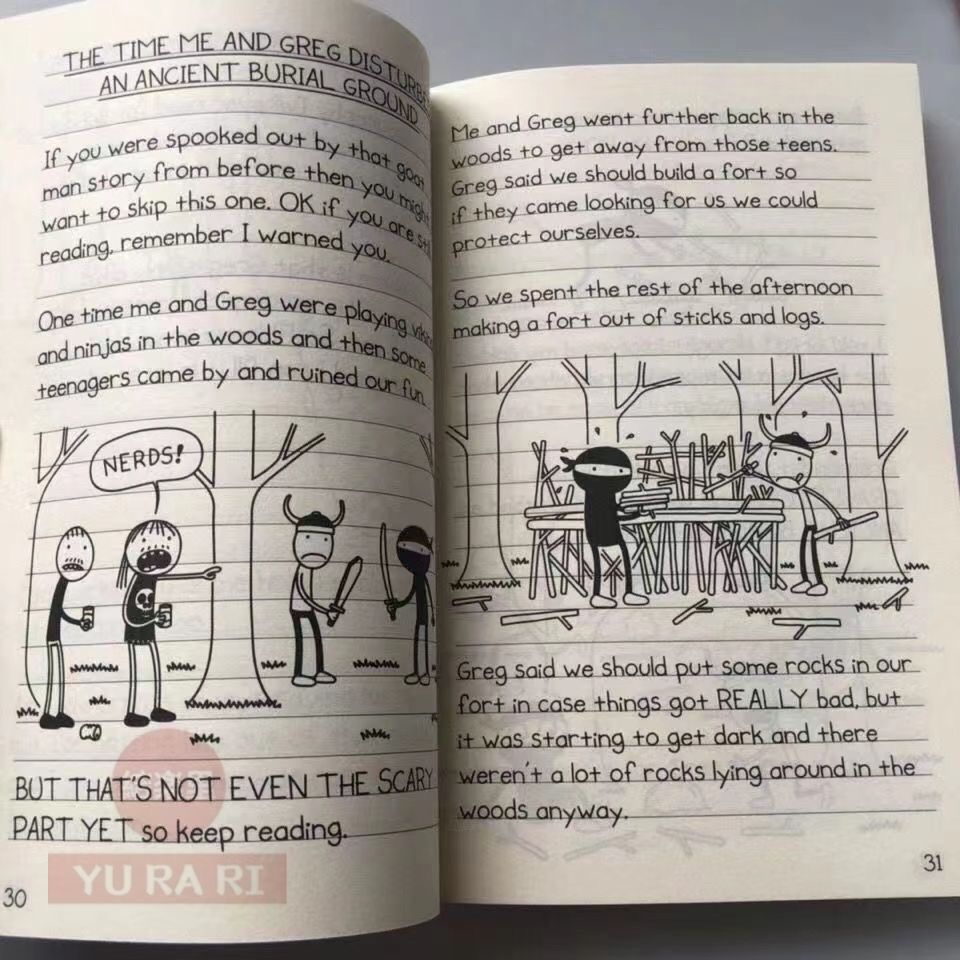 THE TIME ME AND GREG DISTURBE
AN ANCIENT BURIAL GROUND
If you were spooked out by that goat
man story from before then you might
want to skip this one. OK if you are sti
reading, remember I warned you.
One time me and Greg were playing vikin
and ninjas in the woods and then some
teenagers came by and ruined our fun.
NERDS!
BUT THAT'S NOT EVEN THE SCARY
PART YET so keep reading.
YU RA RI
30
Me and Greg went further back in the
woods to get away from those teens.
Greg said we should build a fort so
if they came looking for us we could
protect ourselves.
So we spent the rest of the afternoon
making a fort out of sticks and logs.
Greg said we should put some rocks in our
fort in case things got REALLY bad, but
it was starting to get dark and there
weren't a lot of rocks lying around in the
woods anyway.
31